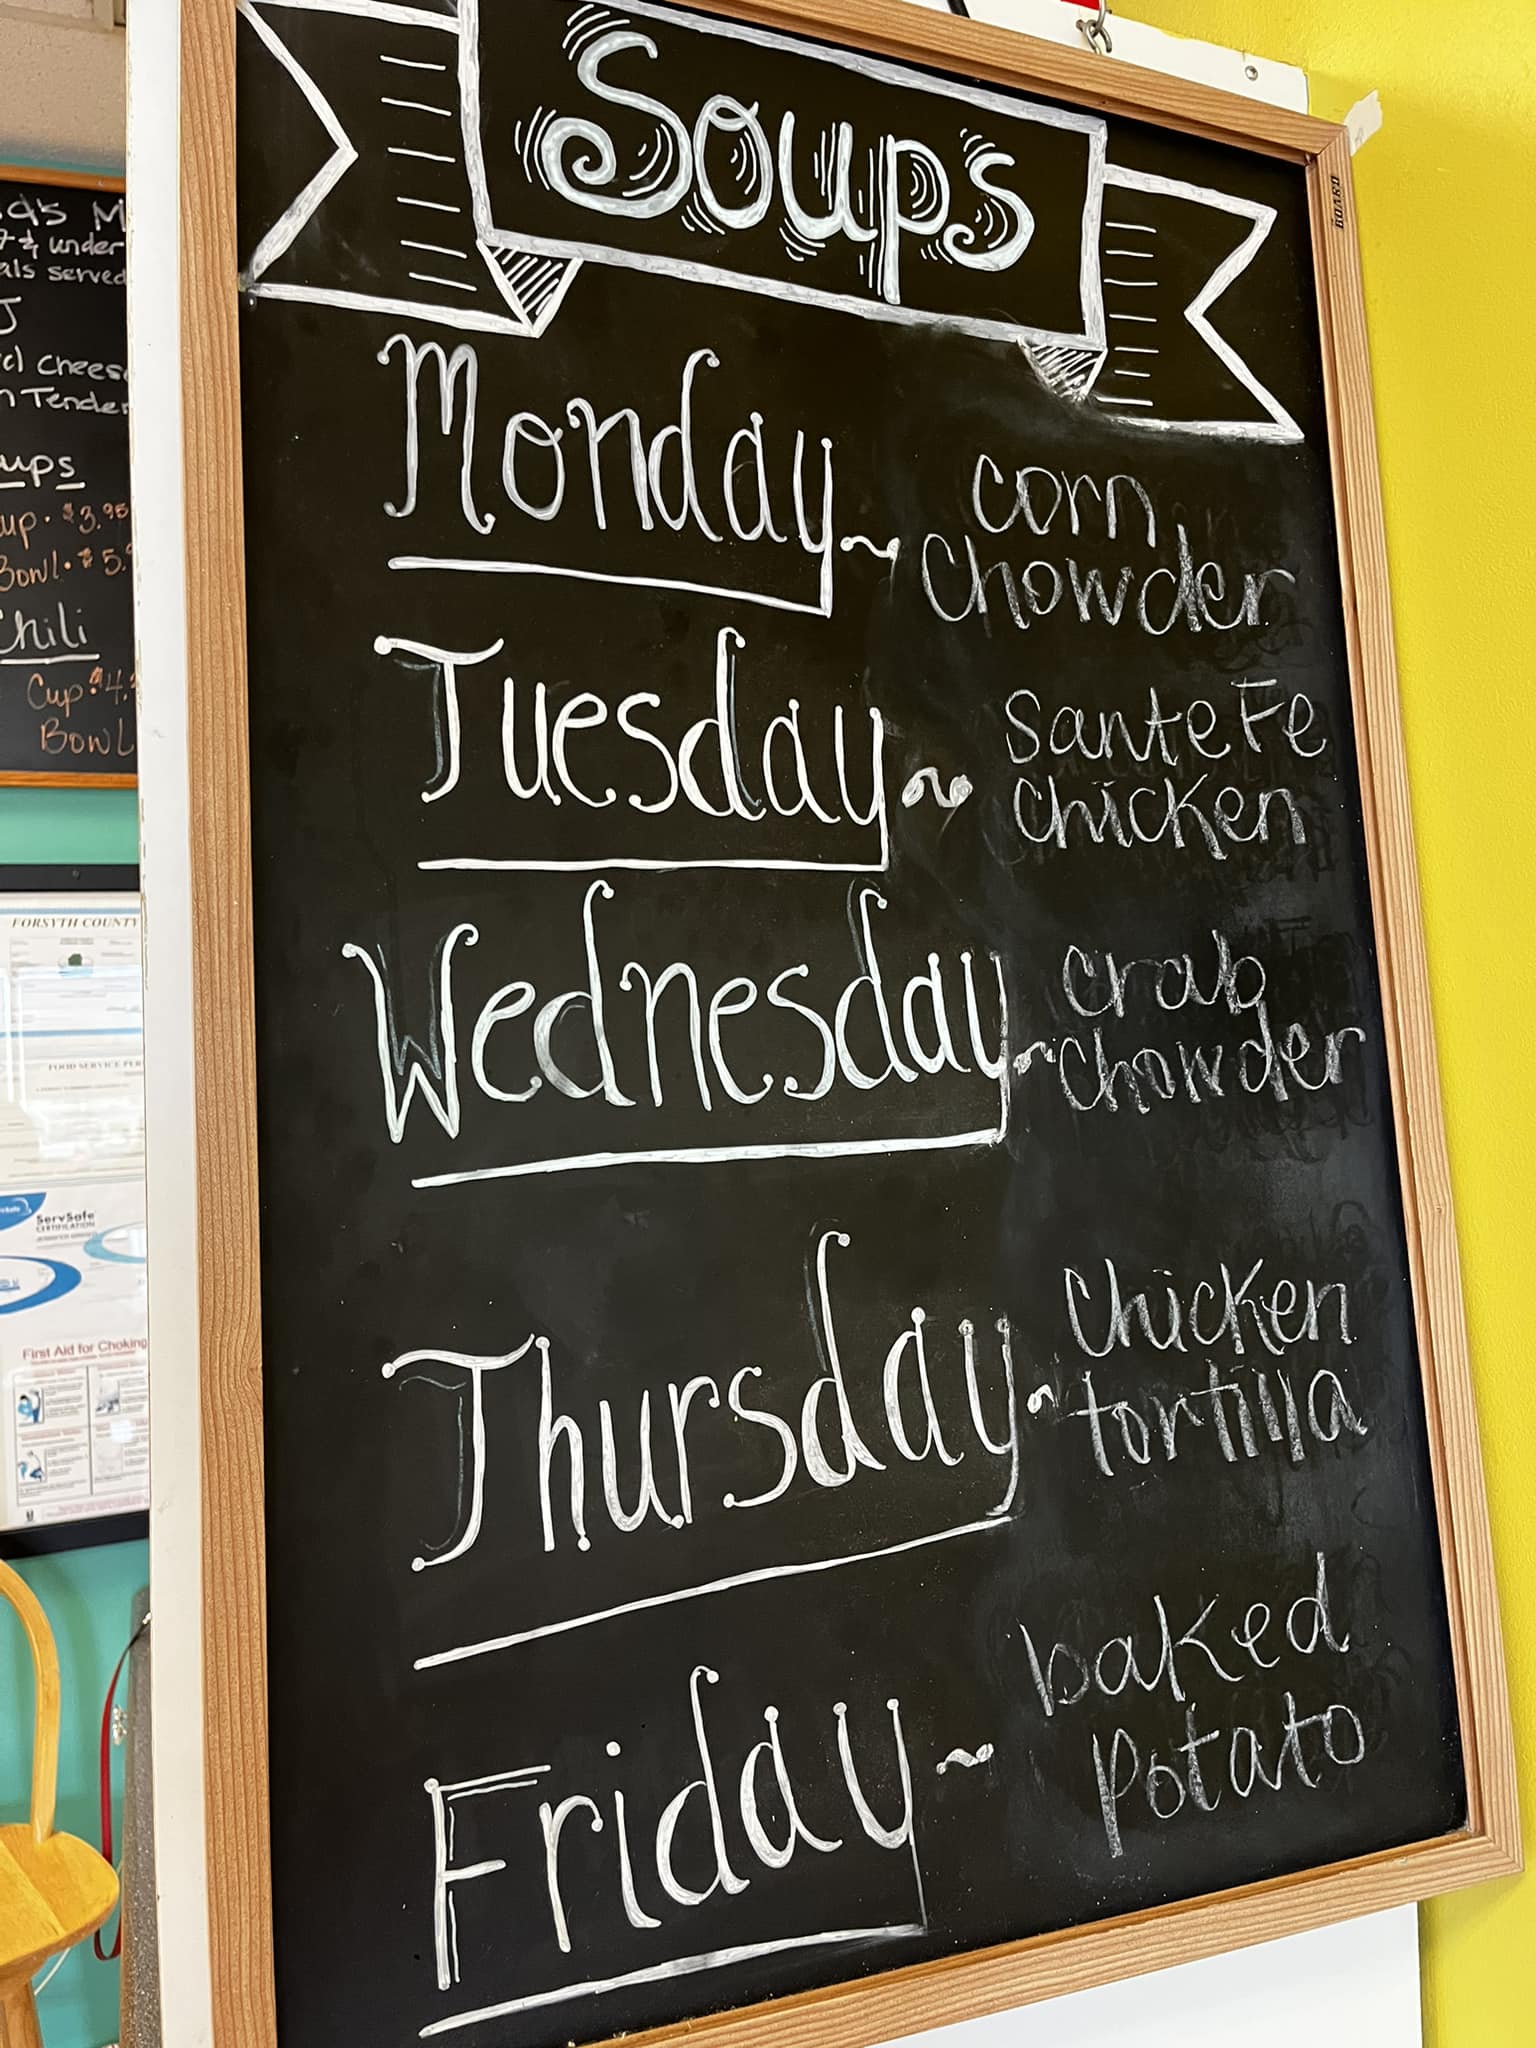 Soups
Monday ~ corn
chowder
Tuesday ~ Sante Fe
chicken
Wednesday ~ crab
chowder
Thursday ~ chicken
tortilla
Friday ~ baked
potato
BOARD
& under
served
J
Tender
ups
$3.95
Bowl. $5.
Chili
Cup $4.
Bowl
FORSYTH COUNTY
FOOD SERVICE
ServSafe
CERTIFICATION
First Aid for Choking